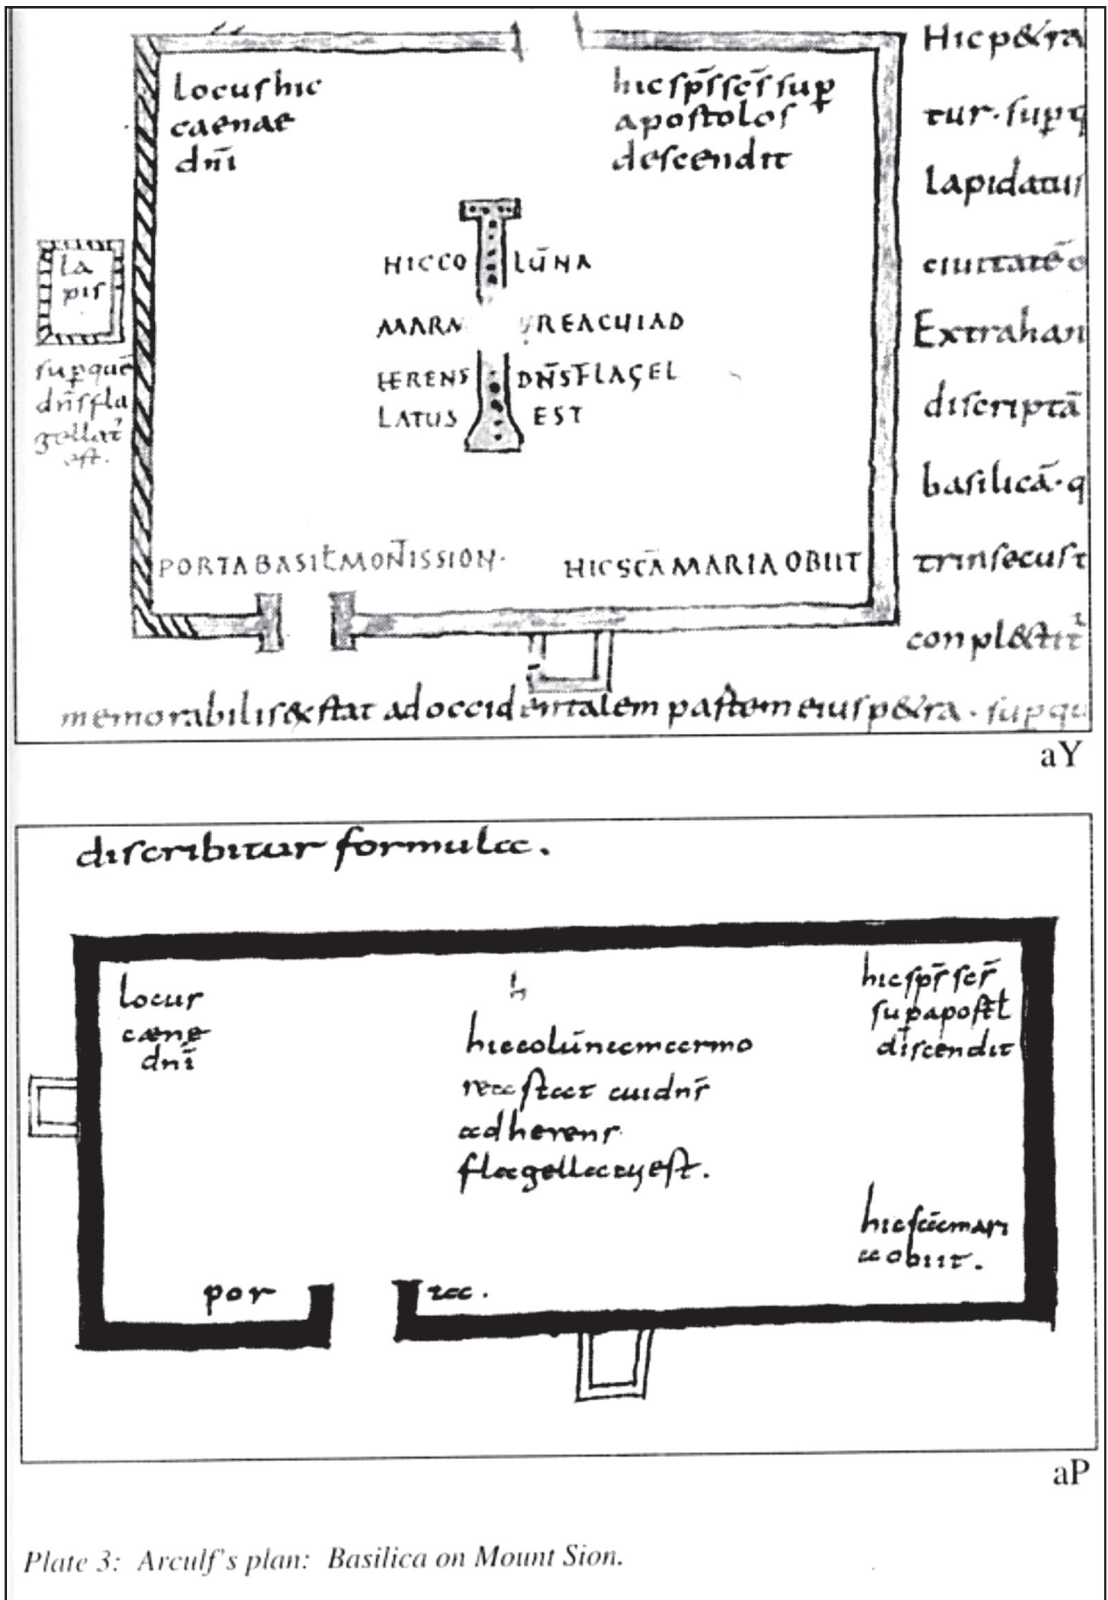 locus hic
caenae
dn̄i
hic sp̄s sc̄s sup̱
apostolos
descendit
la
pis
sup̱ quē
dn̄s fla
gellat᷒
est.
HIC CO LŪNA
MARM REA CUI AD
HERENS DN̄S FLAGEL
LATUS EST
PORTA BASIL MONT̄ISSION·
HIC SCĀ MARIA OBIIT
Hic p&ra
tur· sup̱ q
lapidatus
ciuitatē
Extrahan
discriptā
basilicā· q
trinsecus
conpl&tit᷒
memorabilis &stat ad occidentalem partem eius p&ra· sup̱ qu
aY
discribitur formula.
locus
cæne
dn̄i
h
hic colūnam marmo
rea stat cui dn̄s
adherens
flagellatus est.
hic sp̄s sc̄s
sup apostl
discendit
hic scā mari
a obiit.
por ta.
aP
Plate 3: Arculf's plan: Basilica on Mount Sion.